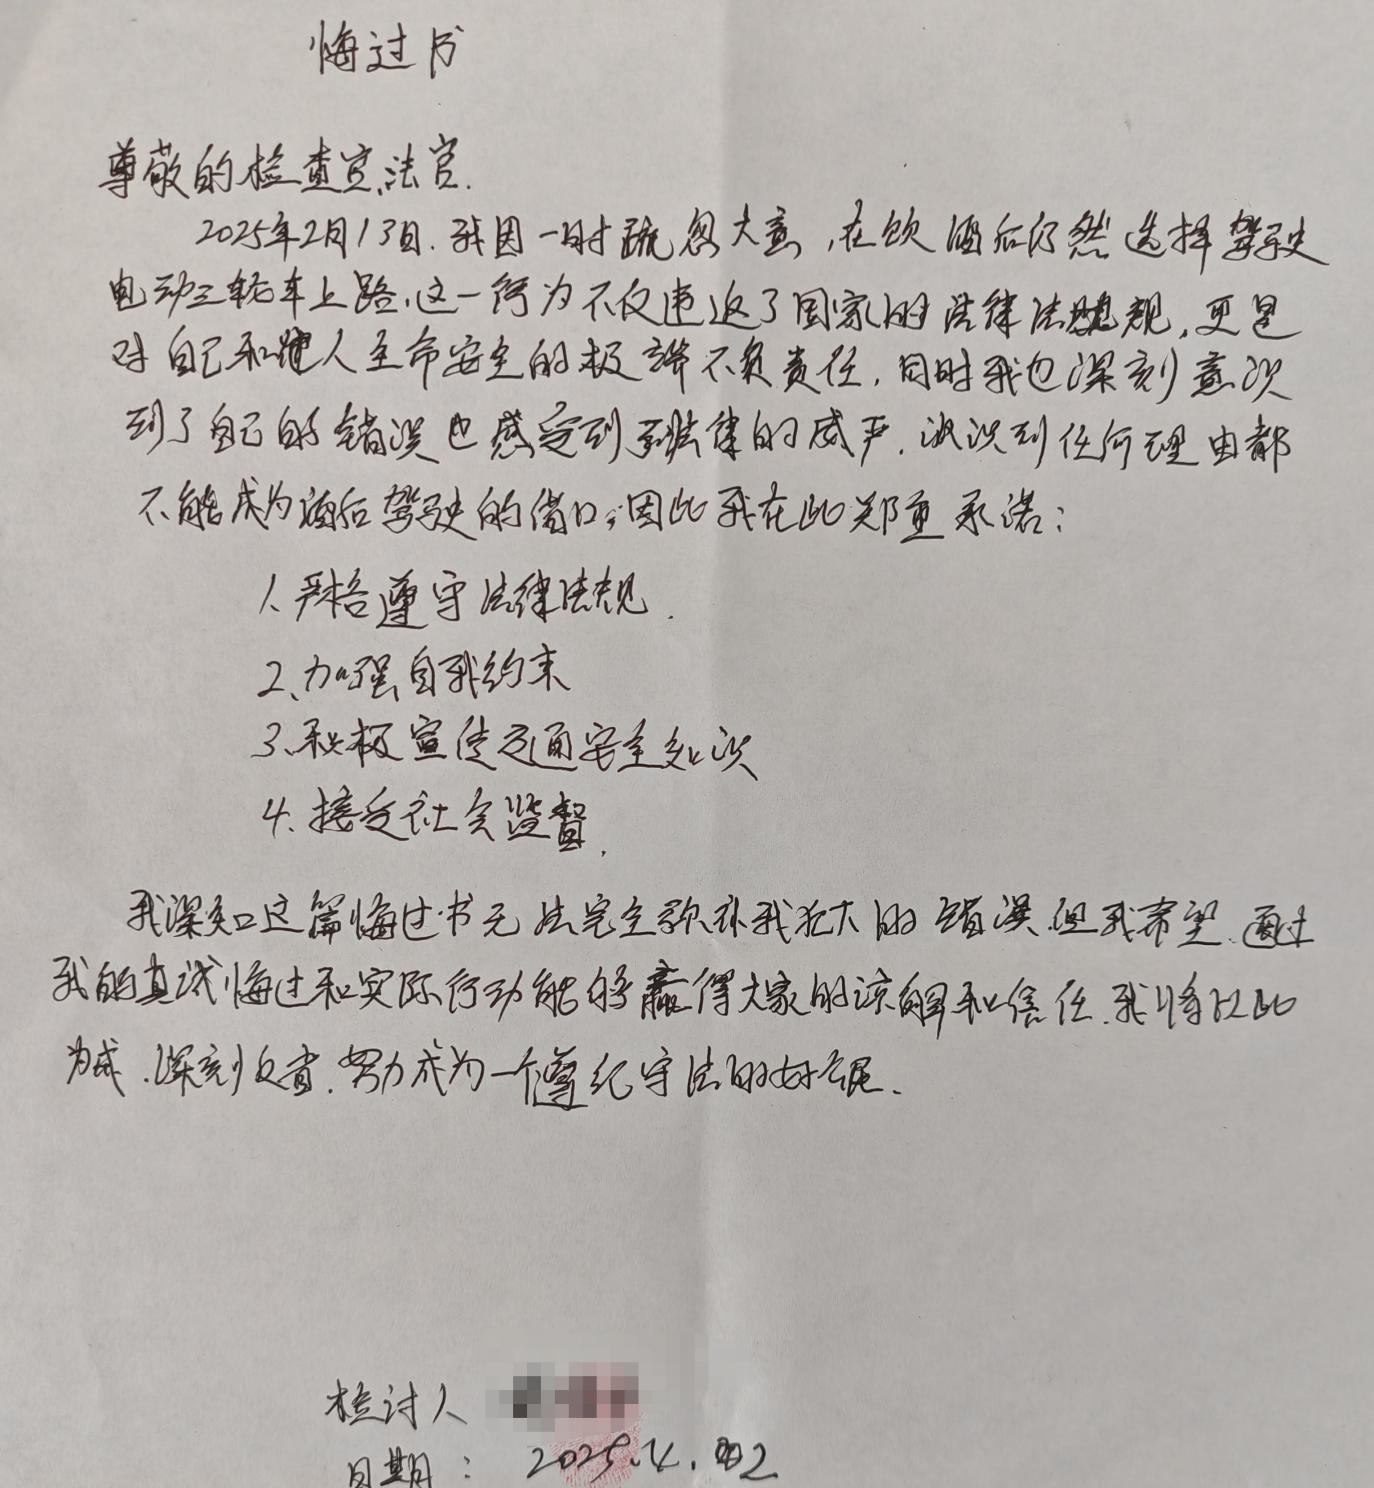 悔过书
尊敬的检查官、法官.
2025年2月13日.我因一时疏忽大意,在饮酒后仍然选择驾驶
电动三轮车上路.这一行为不仅违返了国家的法律法规,更是
对自己和他人生命安全的极端不负责任,同时我也深刻意识
到了自己的错误也感受到到法律的威严.认识到任何理由都
不能成为酒后驾驶的借口,因此我在此郑重承诺:
1.严格遵守法律法规.
2、加强自我约束
3、积极宣传交通安全知识
4、接受社会监督.
我深知这篇悔过书无法完全弥补我犯大的错误.但我希望.通过
我的真诚悔过和实际行动能够赢得大家的谅解和信任.我将以此
为戒.深刻反省.努力成为一个遵纪守法的好公民.
检讨人
日期: 2025.4.2